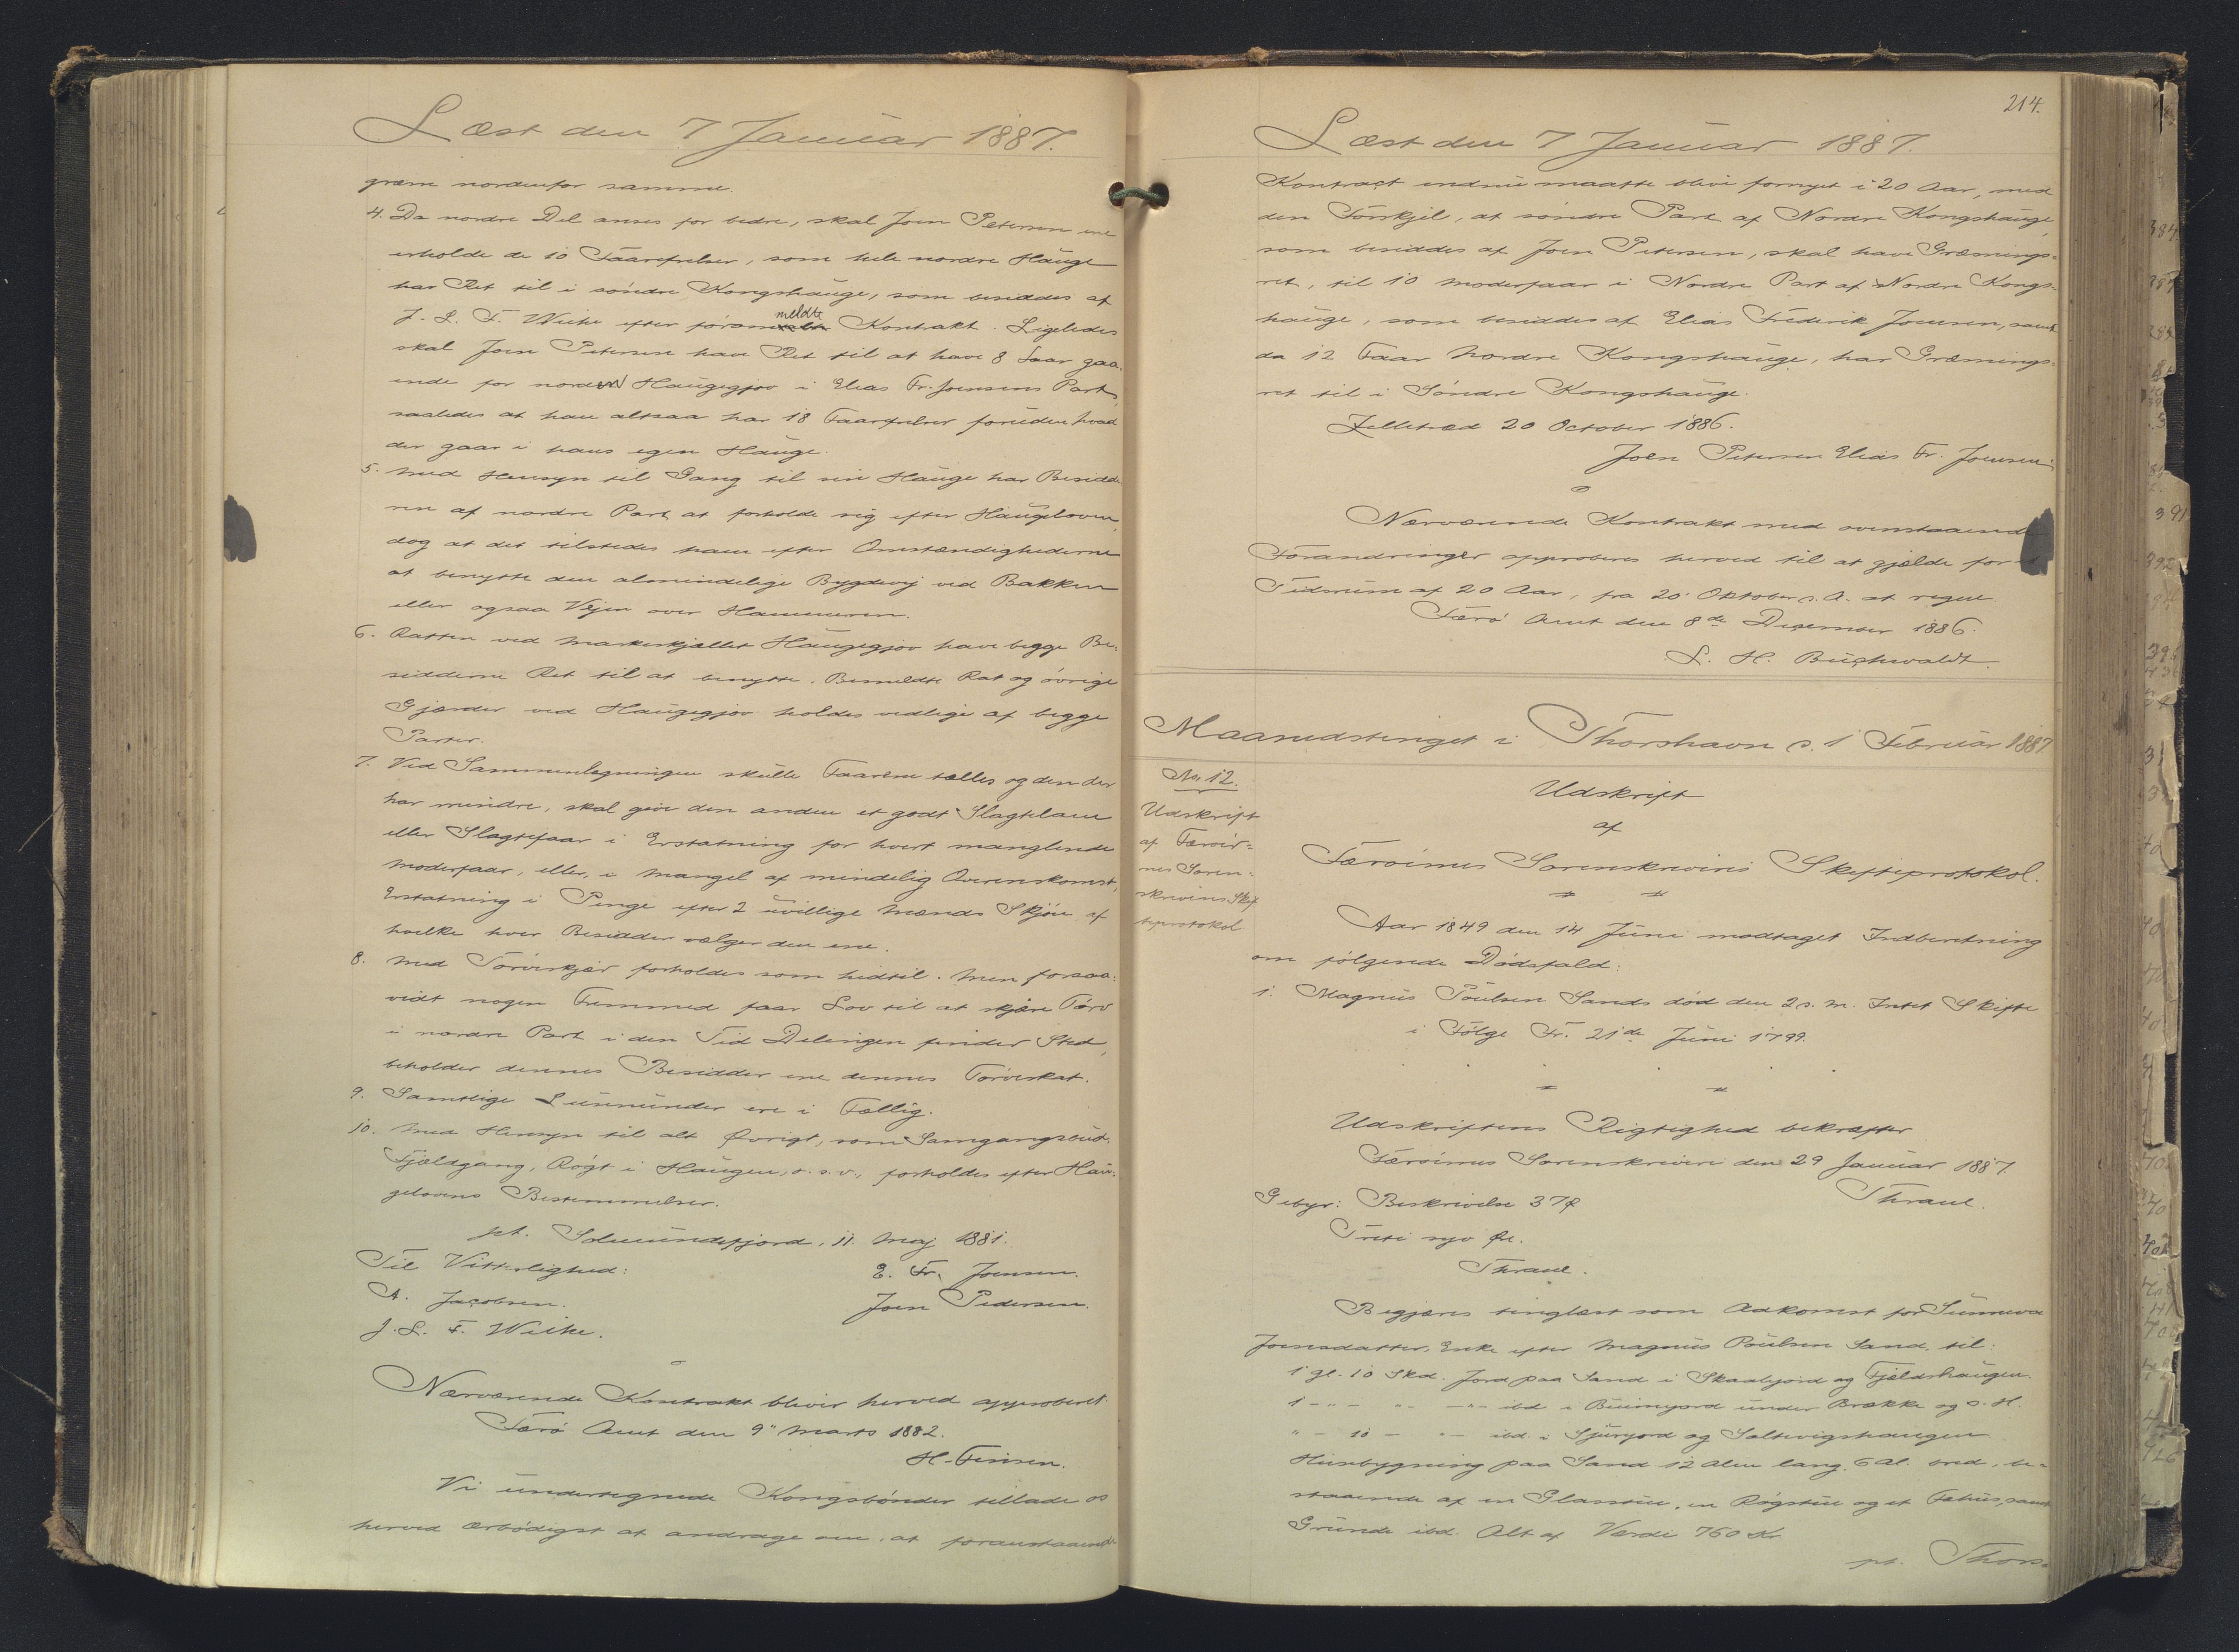 Læst den 7 Januar 1887.
græne nordenfor samme.
4. Da nordre Del anses for bedre, skal Joen Petersen ene
erholde de 10 Faarefrelser, som hele nordre Hauge
har Ret til i søndre Kongshauge, som besiddes af
J. L. F. Weihe efter foranmeldte Kontrakt. Ligeledes
skal Joen Petersen have Ret til at have 8 Faar gaa-
ende for norden Haugegjov i Elias Fr. Joensens Part,
saaledes at han altsaa har 18 Faarefrelser foruden hvad
der gaar i hans egen Hauge.
5. Med Hensyn til Gang til sin Hauge har Besidde
ren af nordre Part at forholde sig efter Haugeloven,
dog at det tilstedes ham efter Omstændighederne
at benytte den almindelige Bygdevej ved Bakken
eller ogsaa Vejen over Hammeren.
6. Ratten ved Markeskjellet Haugegjov have begge Be-
sidderne Ret til at benytte. Bemeldte Rat og øvrige
Gjærder ved Haugegjov holdes vedlige af begge
Parter.
7. Ved Sammenlægningen skulle Faarene tælles og den der
har mindre, skal give den anden et godt Slagtelam
eller Slagtefaar i Erstatning for hvert manglende
Moderfaar, eller, i Mangel af mindelig Overenskomst,
Erstatning i Penge efter 2 uvillige Mænds Skjøn af
hvilke hver Besidder vælger den ene.
8. Med Tørveskjær forholdes som hidtil. Men forsaa-
vidt nogen Fremmed faar Lov til at skjære Tørv
i nordre Part i den Tid Delingen finder Sted,
beholder dennes Besidder ene dennes Tørveskat.
9. Samtlige Lunnunder ere i Fællig.
10. Med Hensyn til alt Øvrigt, som Samgangsbud,
Fjeldgang, Røgt i Haugen, o.s.v., forholdes efter Hau-
gelovens Bestemmelser.
pt. Solmundefjord, 11. Maj 1881.
Til Vitterlighed: E. Fr. Joensen.
A. Jacobsen. Joen Pedersen.
J. L. F. Weihe.
Nærværende Kontrakt bliver herved approberet.
Færø Amt den 9" Marts 1882.
H. Finsen.
Vi undertegnede Kongsbønder tillade os
herved ærbødigst at andrage om, at foranstaaende
214.
Læst den 7 Januar 1887.
Kontract endnu maatte blive fornyet i 20 Aar, med
den Forskjel, at søndre Part af Nordre Kongshauge,
som besiddes af Joen Petersen, skal have Græsnings-
ret, til 10 Moderfaar i Nordre Part af Nordre Kongs-
hauge, som besiddes af Elias Frederik Joensen, samt
da 12 Faar Nordre Kongshauge, har Græsnings-
ret til i Søndre Kongshauge.
Zelletræd 20 October 1886.
Joen Petersen Elias Fr. Joensen
Nærværende Kontrakt med ovenstaaende
Forandringer approberes herved til at gjælde for
Tidsrum af 20 Aar, fra 20' Oktober d. A. at regne
Færø Amt den 8de December 1886.
L. H. Buchwaldt.
Maanedstinget i Thorshavn d. 1 Februar 1887
No. 12.
Udskrift
af Færøer-
nes Soren-
skrivers Skif
teprotokol
Udskrift
af
Færøernes Sorenskriveris Skifteprotokol.
Aar 1849 den 14 Juni modtaget Indberetning
om følgende Dødsfald:
1. Magnus Poulsen Sands død den 2 d. M. Intet Skifte
i Følge Fr. 21de Juni 1799.
Udskriftens Rigtighed bekræfter
Færøernes Sorenskriveri den 29 Januar 1887.
Gebyr: Beskrivelse 37 Ø Thraue.
Treti syv Øre.
Thraue.
Begjæres tinglæst som Adkomst for Sunneva
Joensdatter, Enke efter Magnus Poulsen Sand, til:
1 Gl. 10 Skd. Jord paa Sand i Skaalejord og Fjeldshaugen
1 - " - " - - " - ibd i Buimejord under Brække og S. H.
" - 10 - " - ibd. i Sjurjord og Saltvigshaugen
Husbygning paa Sand 12 Alen lang, 6 Al. bred, be-
staaende af en Glasstue, en Røgstue og et Fæhus, samt
Grunde ibd. Alt af Værdi 760 Kr.
pt. Thors-